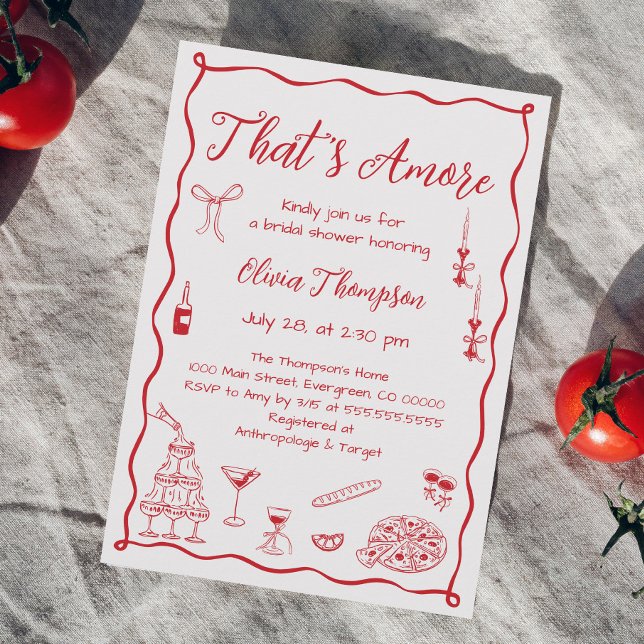 That's Amore
Kindly join us for
a bridal shower honoring
Olivia Thompson
July 28, at 2:30 pm
The Thompson's Home
1000 Main Street, Evergreen, CO 00000
RSVP to Amy by 3/15 at 555.555.5555
Registered at
Anthropologie & Target